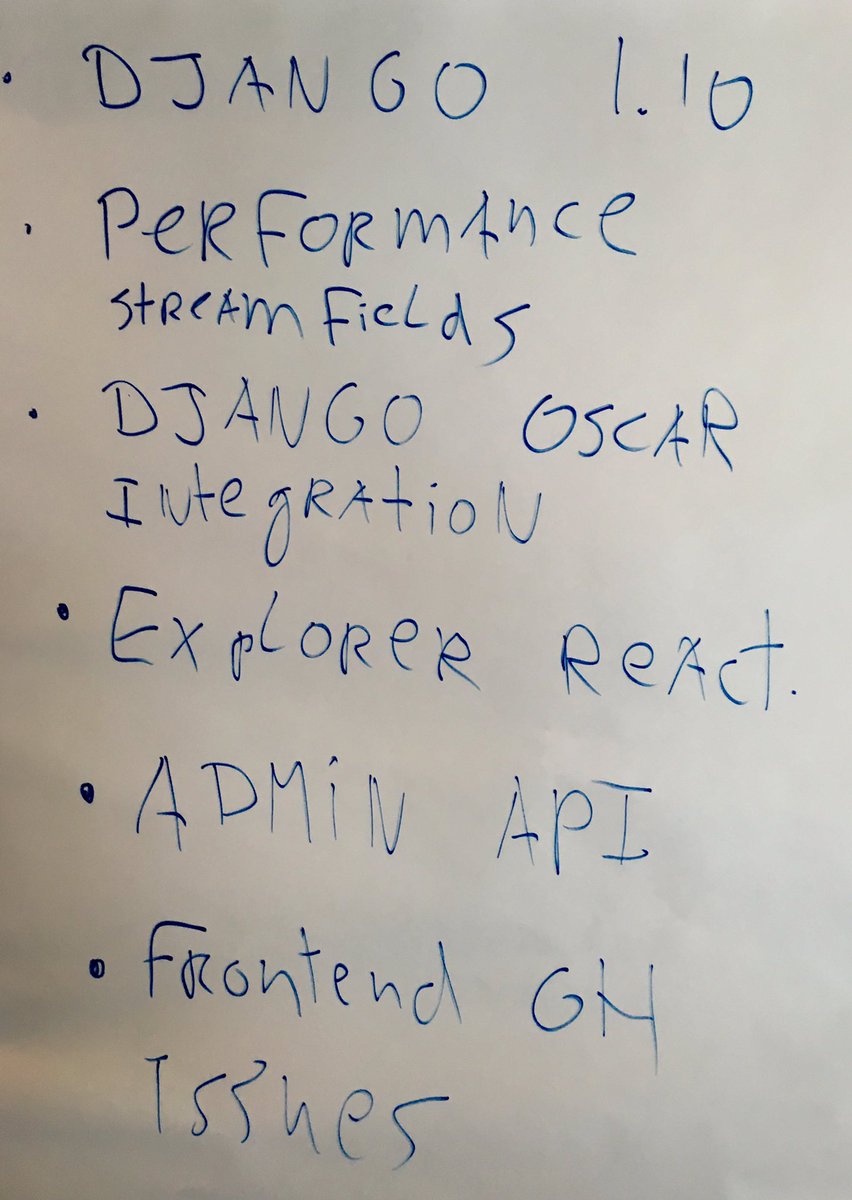 • DJANGO 1.10
• PerFormance
streamFields
• DJANGO OSCAR
Integration
• Explorer React.
• ADMiN API
• Frontend GH
Issues